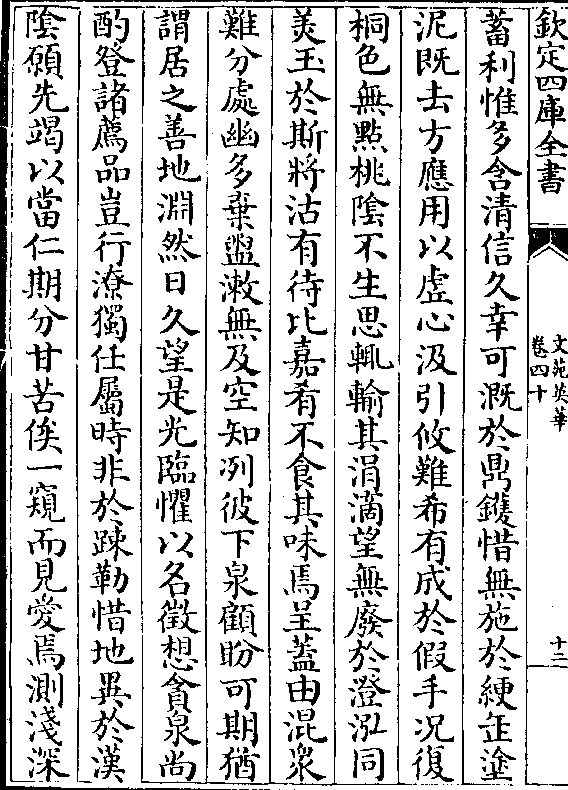 欽定四庫全書
文苑英華
卷四十
十二
蓄利惟多含清信久幸可溉於鼎鑊惜無施於綆缶塗
泥既去方應用以虛心汲引攸難希有成於假手況復
桐色無點桃陰不生思輒輸其涓滴望無廢於澄泓同
美玉於斯將沽有待比嘉肴不食其味焉呈蓋由混衆
難分處幽多棄盥漱無及空知冽彼下泉顧盼可期猶
謂居之善地淵然日久望是光臨懼以名徵想貪泉尚
酌登諸薦品豈行潦獨任屬時非於踈勒惜地異於漢
陰願先竭以當仁期分甘苦俟一窺而見愛焉測淺深